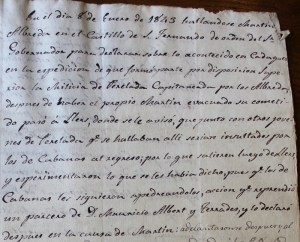 En el dia 8 de Enero de 1843 hallandose Martin
Albreda en el Castillo de S. Fernando de orden del Sr.
Gobernador para declarar sobre lo acontecido en Cadaques
en la expedicion de que formó parte por disposicion Supe
rior la Milicia de Perelada Capitaneada por los Albredas,
despues de haber el propio Martin evacuado su cometi
do pasó á Llers, donde se le avisó, que junto con otros jo
venes de Perelada qe. se hallaban alli serian insultados por
los de Cabanas al regreso, por lo que salieron luego de Llers
y esperimentaron lo que se les habia dicho, pues qe. los de
Cabanas les siguieron apedreandolos, accion qe. reprendió
un parcero de D. Mauricio Albert y Terrades, y lo declaró
despues en la causa de Martin: adelantaronse